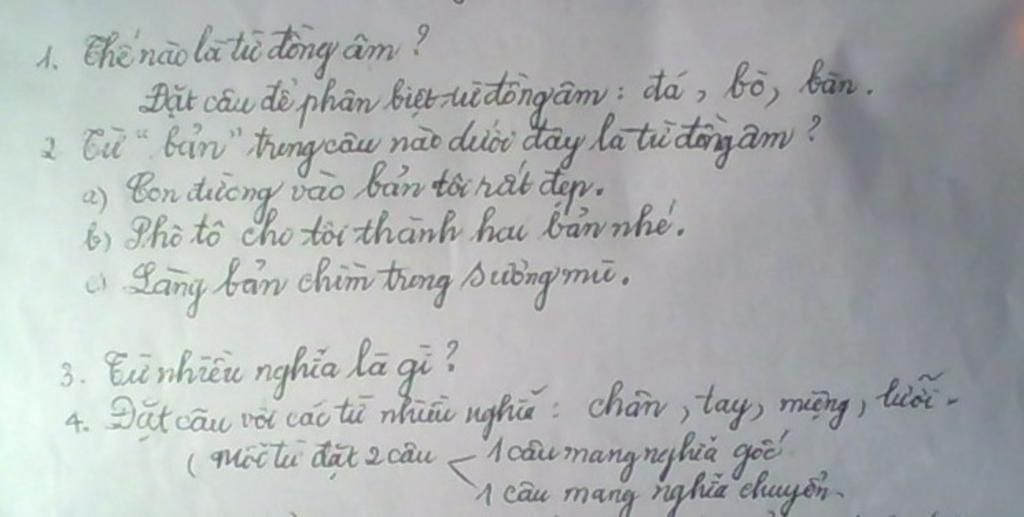 1. Thế nào là từ đồng âm ?
Đặt câu để phân biệt từ đồng âm : đá, bò, bàn.
2 Từ "bản" trong câu nào dưới đây là từ đồng âm ?
a) Con đường vào bản tôi rất đẹp.
b) Phô tô cho tôi thành hai bản nhé.
c) Làng bản chìm trong sương mù.
3. Từ nhiều nghĩa là gì ?
4. Đặt câu với các từ nhiều nghĩa : chân, tay, miệng, lưỡi.
( Mỗi từ đặt 2 câu 1 câu mang nghĩa gốc
1 câu mang nghĩa chuyển.